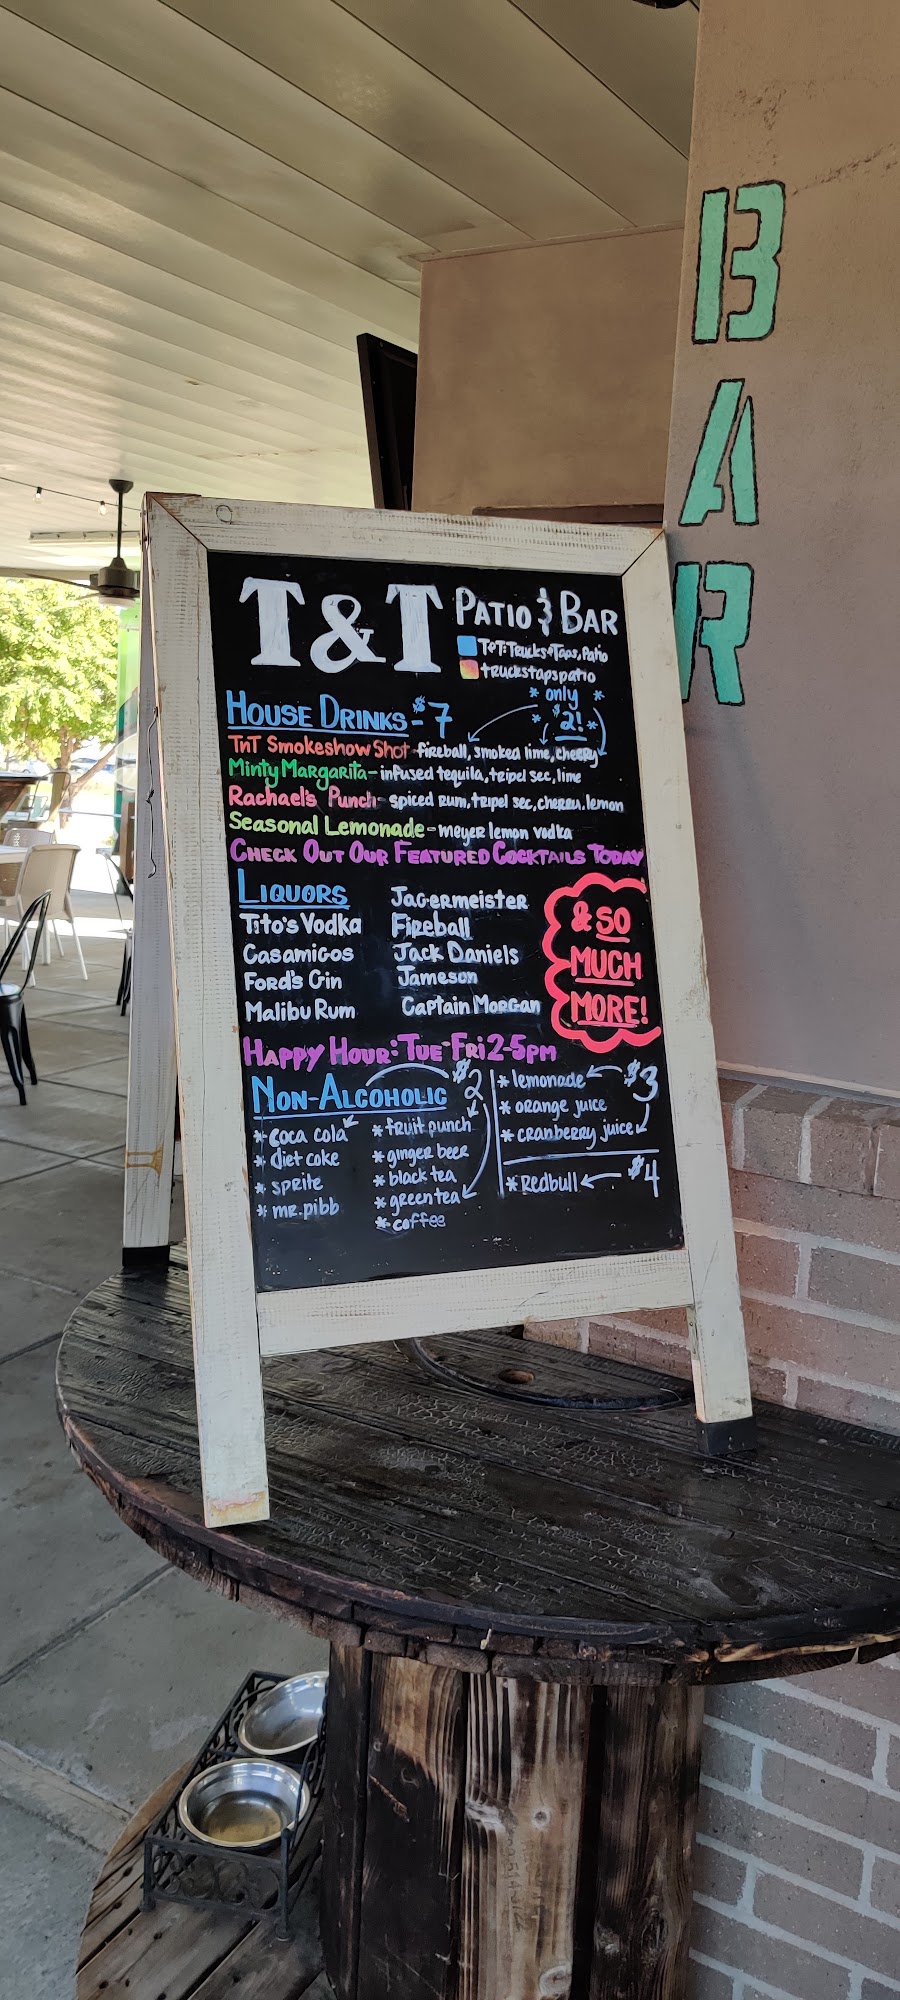 BAR
T&T PATIO & BAR
T&T: Trucks & Taps, Patio
truckstapspatio
* only *
* $2! *
HOUSE DRINKS - $7
TnT Smokeshow Shot - fireball, smoked lime, cherry
Minty Margarita - infused tequila, tripel sec, lime
Rachael's Punch - spiced rum, tripel sec, cherry, lemon
Seasonal Lemonade - meyer lemon vodka
CHECK OUT OUR FEATURED COCKTAILS TODAY
LIQUORS
Tito's Vodka
Casamigos
Ford's Gin
Malibu Rum
Jagermeister
Fireball
Jack Daniels
Jameson
Captain Morgan
& SO
MUCH
MORE!
HAPPY HOUR: TUE-FRI 2-5PM
NON-ALCOHOLIC $2
* coca cola
* diet coke
* sprite
* mr. pibb
* fruit punch
* ginger beer
* black tea
* green tea
* coffee
* lemonade $3
* orange juice
* cranberry juice
* Redbull $4